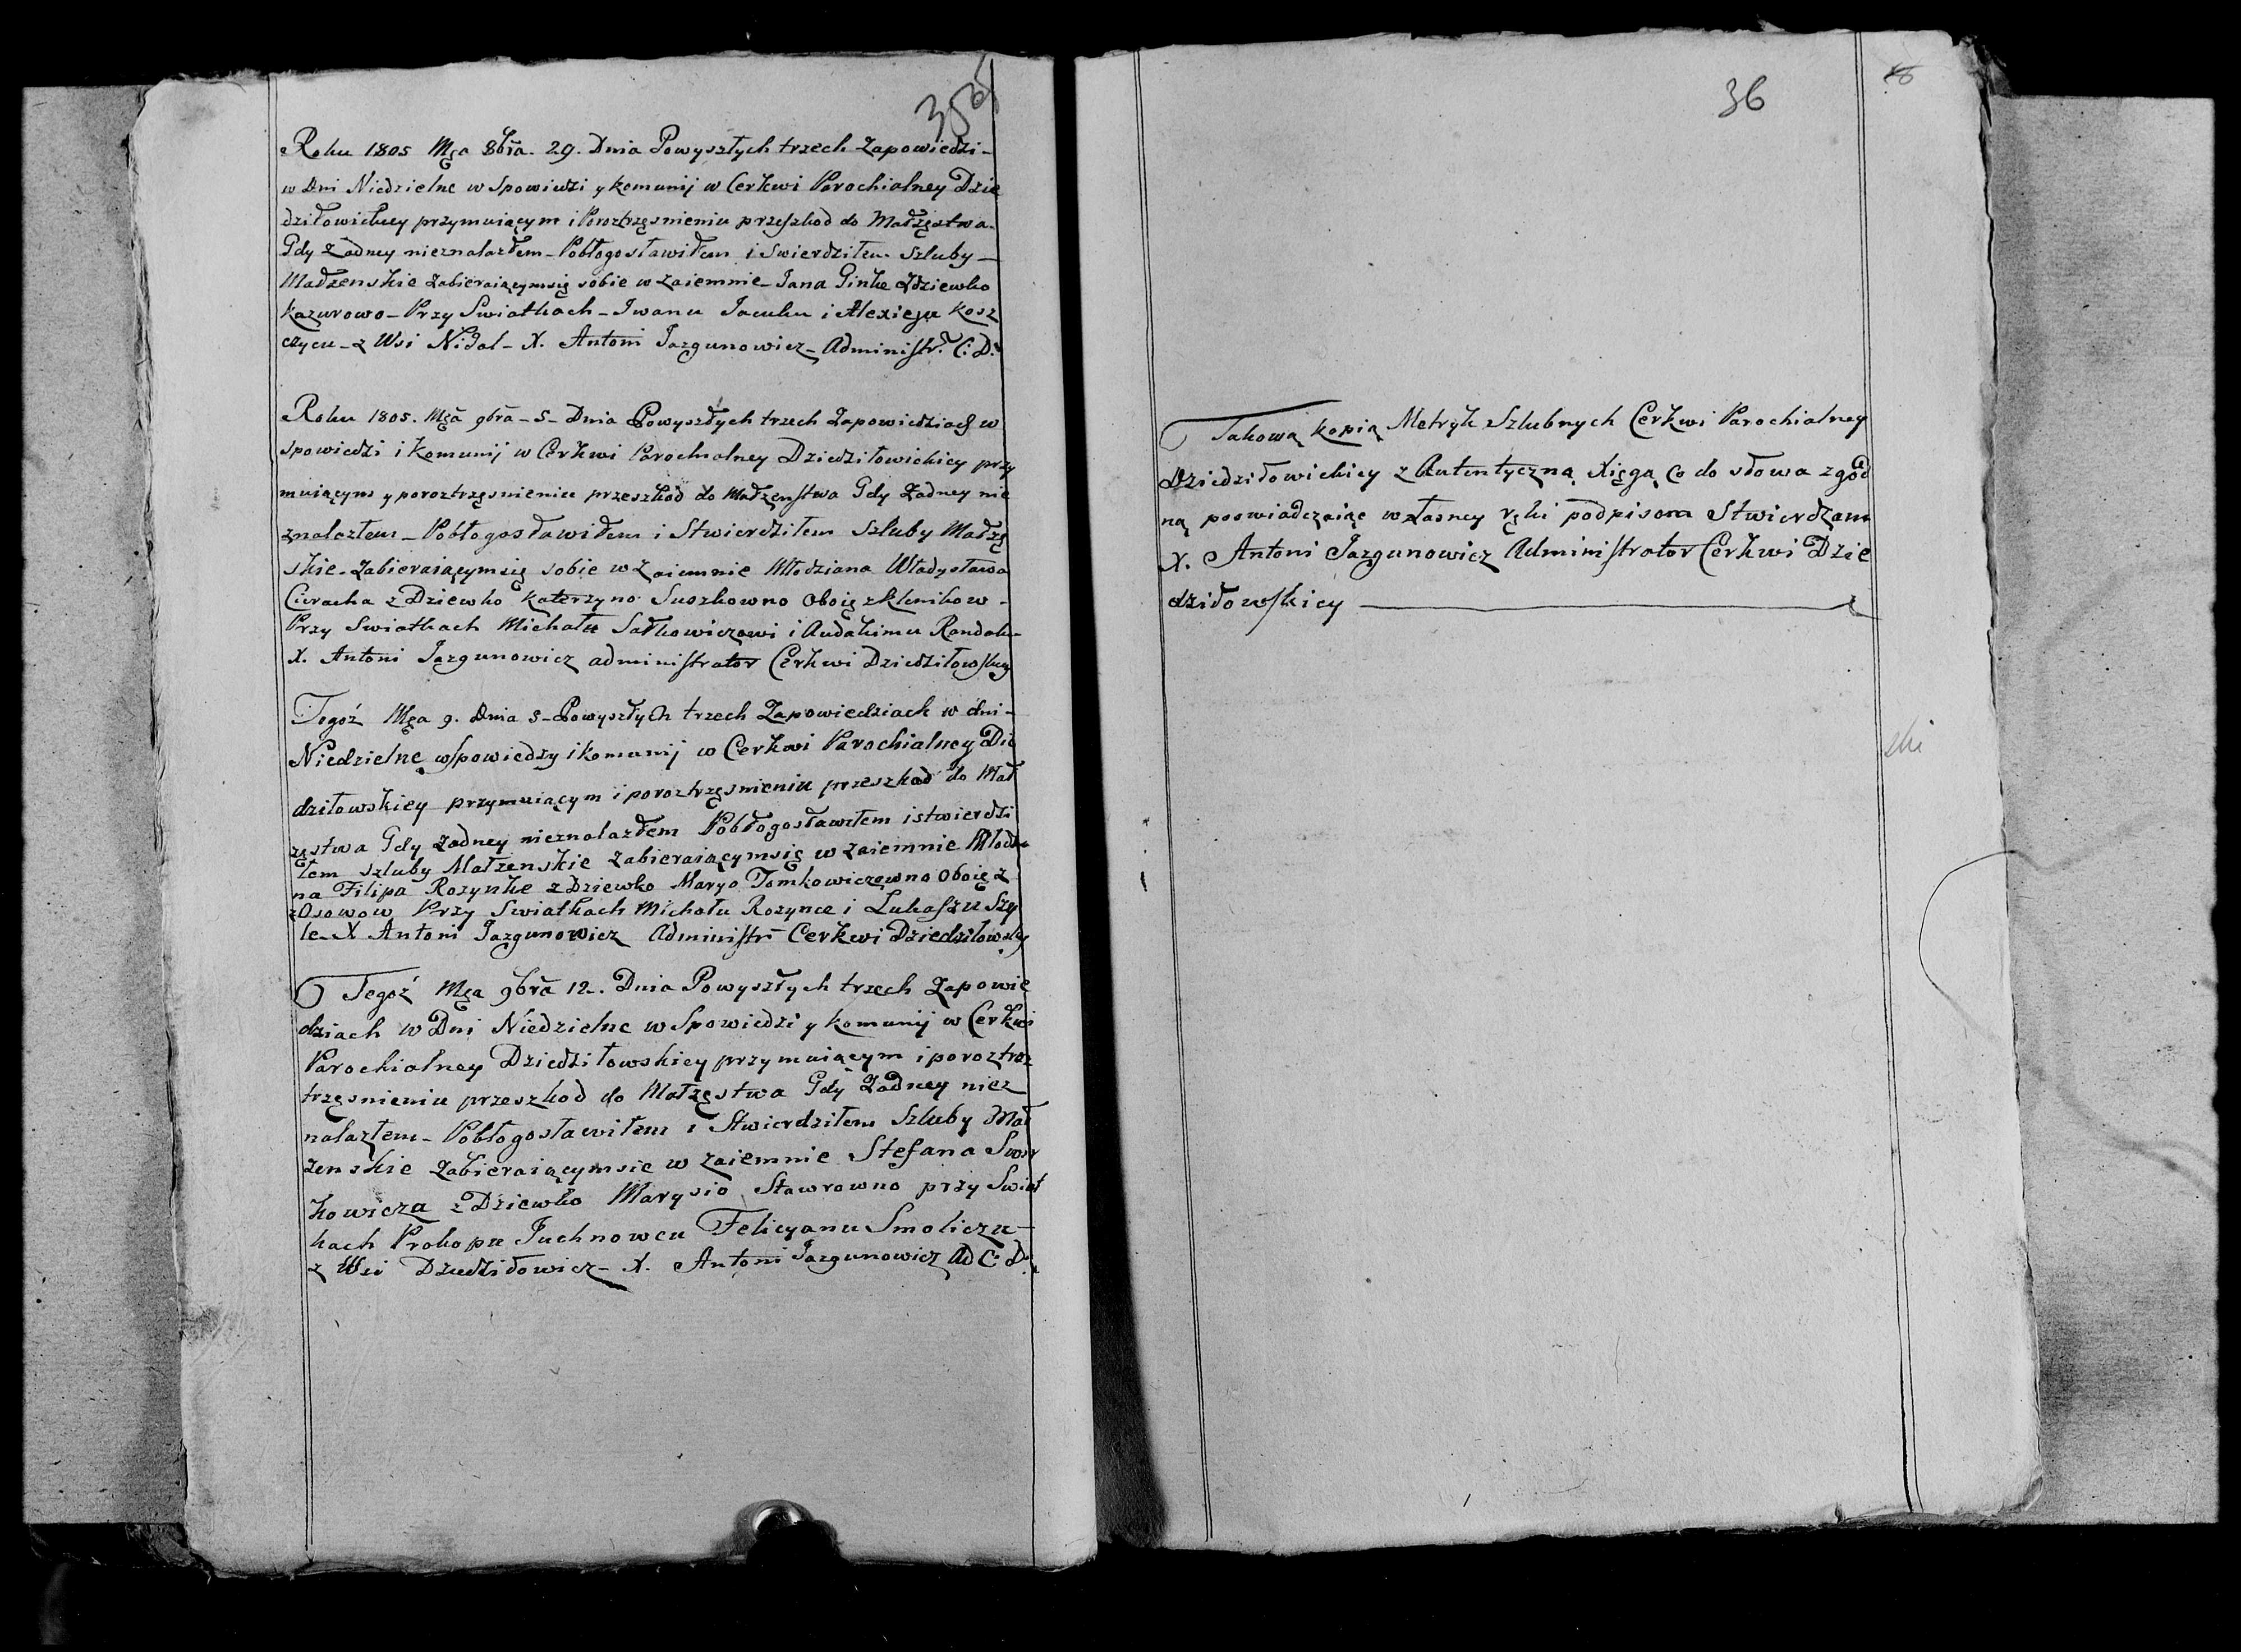 Roku 1805 Mca 8bra. 29. Dnia Powyszłych trzech Zapowiedzi-
w Dni Niedzielne w Spowiedzi y komunij w Cerkwi Parochialney Dzie
dziłowickiey przymuiącym i Poroztrzęsnieniu przeszkod do Małzęstwa-
Gdy Zadney nieznalazłem - Pobłogosławiłem i Swierdziłem Szluby-
Małzenskie Zabieraiącymsię sobie w zaiemnie- Jana Ginke zdziewko
Kazurowo - Przy Swiatkach - Iwanu Jacuku i Alexieju Kosz
czycu - z Wsi Nidal - X. Antoni Jazgunowicz - Administr. C: D:
Roku 1805. Mca 9bra - 5 - Dnia Powyszłych trzech Zapowiedziach w
spowiedzi i Komunij w Cerkwi Parochialney Dziedziłowickiey przy
muiącym y poroztrzęsnieniu przeszkod do Małzenstwa Gdy Zadney nie
znalazłem - Pobłogosławiłem i Stwierdziłem Szluby Małzę
skie - Zabieraiącymsię sobie w zaiemnie Młodziana Władysława
z Dziewko Katerzyno Suszkowno Oboię z Klenikow -
Przy Swiatkach Michału Sałkowiczowi i Audakimu
X. Antoni Jazgunowicz administrator Cerkwi Dziedziłowskiey
Tegoż Mca 9. Dnia 5 - Powyszłych trzech Zapowiedziach w dni -
Niedzielne w spowiedzy i komunij w Cerkwi Parochialney Die
dziłowskiey przymuiącym i poroztrzęsnieniu przeszkod do Mał
zęstwa Gdy Zadney nieznalazłem Pobłogosławiłem i stwierdzi
łem szluby Małzenskie zabieraiącymsię w zaiemnie Młodzia
na Filipa Rozynke z Dziewko Maryo Tomkowiczowno Oboię z
z Osowow Przy Swiatkach Michału Rozynce i Lukaszu Szy
le - X Antoni Jazgunowicz Administr Cerkwi Dziedziłowskiey
Tegoż Mca 9bra 12. Dnia Powyszłych trzech Zapowie
dziach w Dni Niedzielne w Spowiedzi y komunij w Cerkwi
Parochialney Dziedziłowskiey przymuiącym i poroztrzez
trzęsnieniu przeszkod do Małzęstwa Gdy Zadney niez
nalazłem - Pobłogosławiłem i Stwierdziłem Szluby Mał
zenskie Zabieraiącymsie w zaiemnie Stefana Swir
kowicza z Dziewko Marysio Stawrowno przy Swiat
kach Prokopu Juchnowcu Felicyanu Smoliczu -
z Wsi Dziedziłowicz - X. Antoni Jazgunowicz AD C: D:
36
Takową kopią Metryk Szlubnych Cerkwi Parochialney
Dziedziłowickiey z Autentyczną Xięgą Co do słowa zgod
ną poswiadczaiąc własney ręki podpisem Stwierdzam
X. Antoni Jazgunowicz Administrator Cerkwi Dzie
dziłowskiey